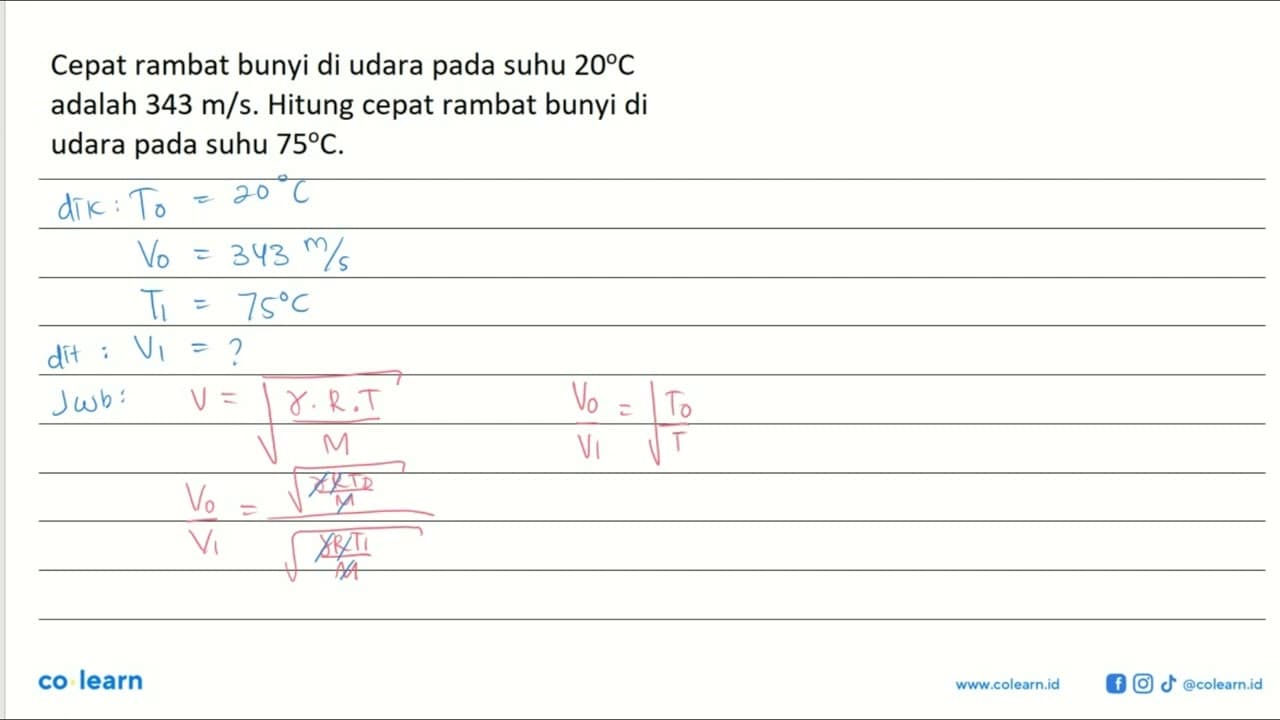 Cepat rambat bunyi di udara pada suhu 20°C
adalah 343 m/s. Hitung cepat rambat bunyi di
udara pada suhu 75°C.
dik: T₀ = 20°C
V₀ = 343 m/s
T₁ = 75°C
dit : V₁ = ?
Jwb: V = √(γ.R.T / M)
V₀/V₁ = √(γRT₀/M) / √(γRT₁/M)
V₀/V₁ = √(T₀/T)
co learn
www.colearn.id
@colearn.id